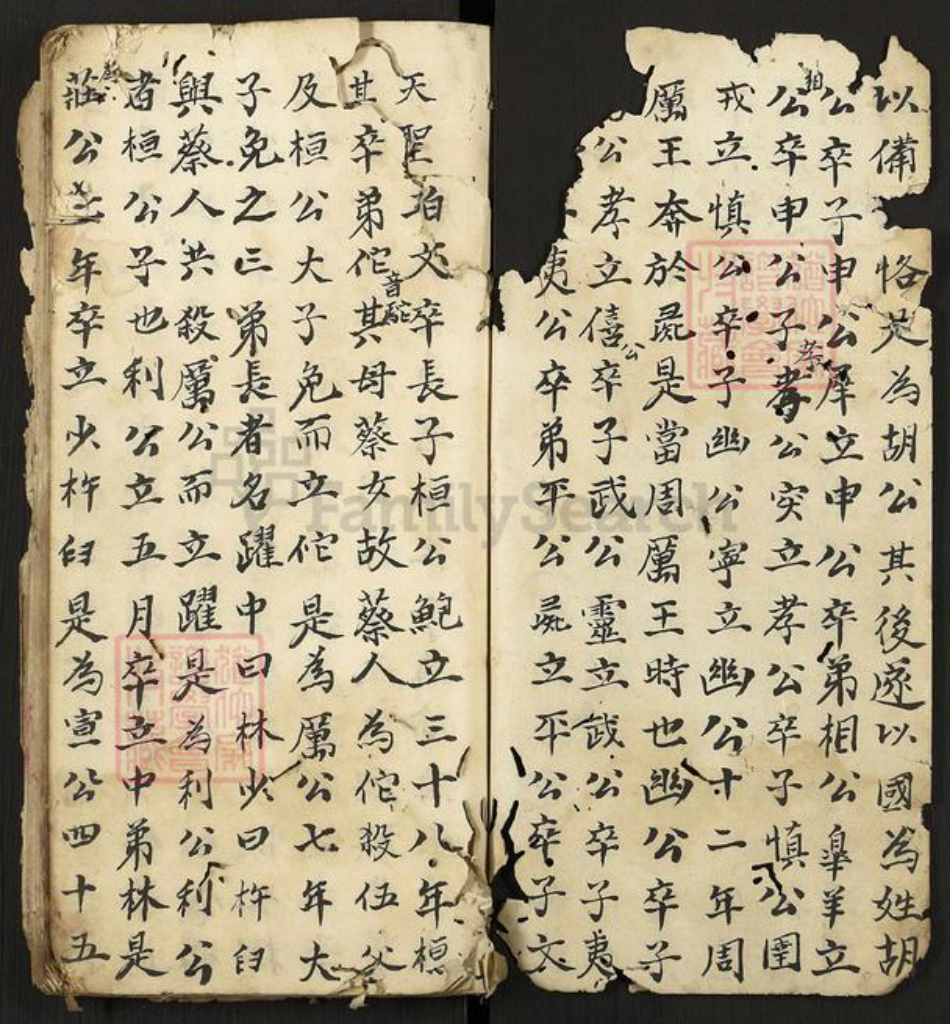 以備 恪為胡公其後遂以國為姓胡
公卒子申公犀立申公卒弟相公臯羊立相
公卒申公子孝公突立孝公卒子慎公圉
戎立慎公卒子幽公寧立幽公十二年周
厲王奔於彘是當周厲王時也幽公卒子
公孝立僖公卒子武公靈立武公卒子夷
夷公卒弟平公彘立平公卒子文
天聖珀文卒長子桓公鮑立三十八年桓
其卒弟佗音駝其母蔡女故蔡人為佗殺伍父
及桓公大子免而立佗是為厲公七年大
子免之三弟長者名躍中曰林少曰杵臼
與蔡人共殺厲公而立躍是為利公利公
者桓公子也利公立五月卒立中弟林是
莊公七年卒立少杵臼是為宣公四十五
FamilySearch